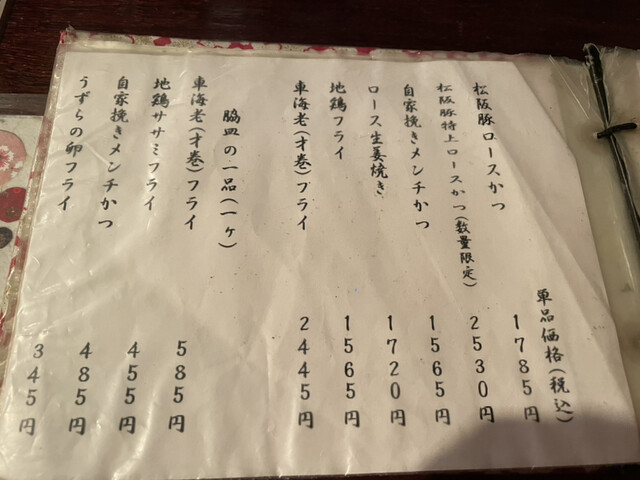 単品価格(税込)
松阪豚ロースかつ 1785円
松阪豚特上ロースかつ(数量限定) 2530円
自家挽きメンチかつ 1565円
ロース生姜焼き 1720円
地鶏フライ 1565円
車海老(才巻)フライ 2445円
脇皿の一品(一ヶ)
車海老(才巻)フライ 585円
地鶏ササミフライ 455円
自家挽きメンチかつ 485円
うずらの卵フライ 345円